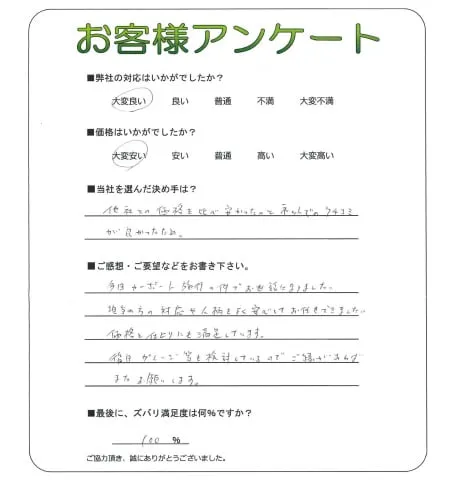 お客様アンケート
■弊社の対応はいかがでしたか？
大変良い 良い 普通 不満 大変不満
■価格はいかがでしたか？
大変安い 安い 普通 高い 大変高い
■当社を選んだ決め手は？
他社との価格を比べ安かったのと ネットでの クチコミ
が良かったため。
■ご感想・ご要望などをお書き下さい。
今日カーポート 取付の件でお世話になりました。
担当の方の対応や人柄も良く安心してお任せできました
価格と仕上りにも満足しています。
後日 ガレージ等も検討しているので ご縁があれば
またお願いします。
■最後に、ズバリ満足度は何%ですか？
100 %
ご協力頂き、誠にありがとうございました。